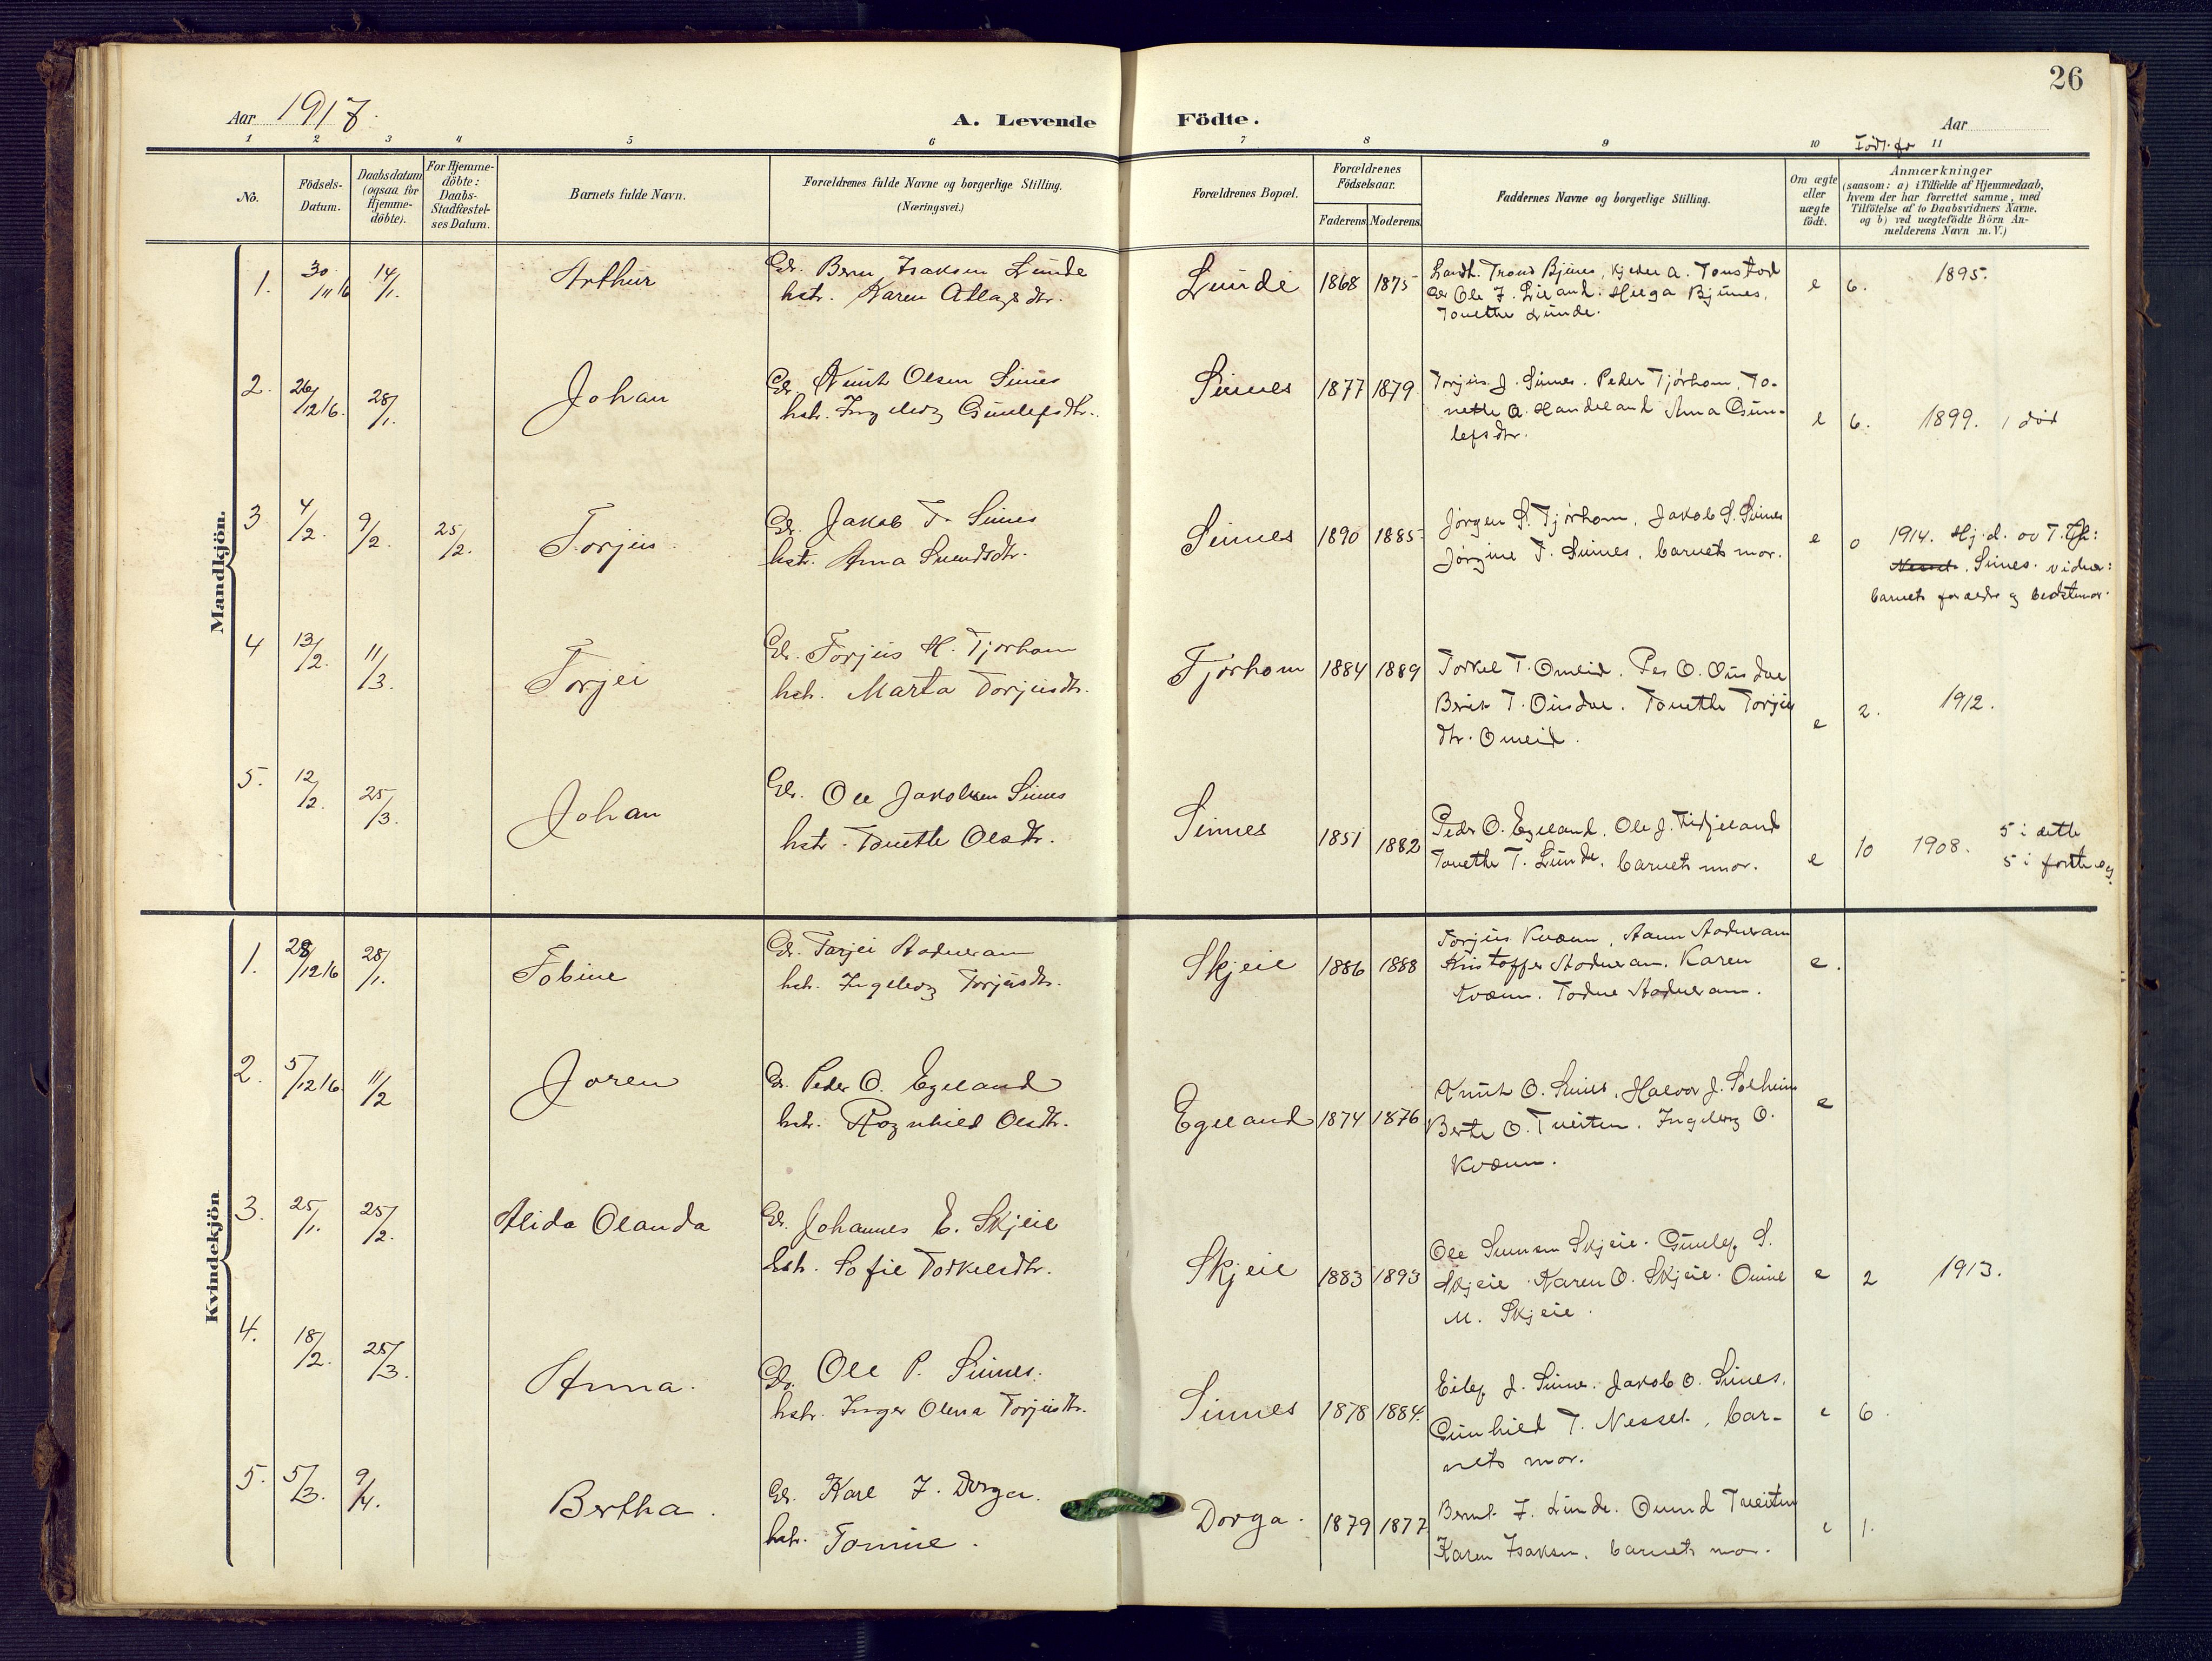 26
Aar 1917.
A. Levende Födte.
Aar
1 2 3 4 5 6 7 8 9 10 11
Födt. før
No.
Födsels-Datum.
Daabsdatum (ogsaa for Hjemme-döbte).
For Hjemme-döbte: Daabs-Stadfæstel-ses Datum.
Barnets fulde Navn.
Forældrenes fulde Navne og borgerlige Stilling.
(Næringsvei.)
Forældrenes Bopæl.
Forældrenes Födselsaar.
Faderens. Moderens.
Faddernes Navne og borgerlige Stilling.
Om ægte eller uægte födt.
Anmærkninger
(saasom: a) i Tilfælde af Hjemmedaab,
hvem der har forrettet samme, med
Tilföielse af to Daabsvidners Navne.
og b) ved uægtefödte Börn An-
melderens Navn m. V.)
Mandkjön.
1. 30/11 16 14/1. Arthur
Gbr. Bern Isaksen Lunde
hstr. Karen Atlagsdtr.
Lunde 1868 1875
Landh. Trond Bjunes, Kjeder A. Tonstad
Gbr Ole J. Lieand. Helga Bjunes,
Tonette Lunde.
e 6. 1895.
2. 26/12 16. 28/1. Johan
Gbr. Knut Olsen Sinnes
hstr. Ingeborg Gunlefsdtr.
Sinnes 1877 1879
Torjus J. Sinnes. Peder Tjørhom, To-
nette O. Handeland Anna Gun-
lefsdtr.
e 6. 1899. 1 død
3 4/2. 9/2. 25/2. Torjus.
Gbr. Jakob T. Sinnes
hstr. Anna Svendsdtr.
Sinnes 1890 1885
Jørgen S. Tjørhom, Jakob S. Sinnes
Jørgine T. Sinnes, barnets mor.
e 0 1914. Hj.d. av T.
Sinnes. vidner:
barnets forældre og bedstemor.
4 13/2. 11/3. Torjei
Gbr. Torjus H. Tjorhom
hstr. Marta Torjusdtr.
Tjørhom 1884 1889
Torkel T. Omeid. Per O. Ousdal
Berit T. Ousdal. Tonette Torjus
dtr. Omeid.
e 2. 1912.
5. 12/2. 25/3. Johan
Gbr. Ole Jakobsen Sinnes
hstr. Tonette Olsdtr.
Sinnes 1851 1882
Peder O. Egeland. Ole J. Fidjeland
Tonette T. Lunde, barnets mor.
e 10 1908. 5 i dette
5 i første eg.
Kvindekjön
1. 28/12 16 28/1. Tobine
Gbr. Tarjei Aadneram
hstr. Ingeborg Torjusdtr.
Skjeie 1886 1888
Torjus Kvæven, Aanen Aadneram
Kristoffer Aadneram. Karen
Kvæven. Todne Aadneram.
e.
2. 5/12 16. 11/2 Joren
Gbr. Peder O. Egeland
hstr. Ragnhild Olsdtr.
Egeland 1874 1876
Knut O. Sinnes, Halvor J. Solheim
Berte O. Tveiten. Ingeborg O.
Kvæven.
e
3. 25/1. 25/2. Alida Olanda
Gbr. Johannes E. Skjeie
hstr. Sofie Torkelsdtr.
Skjeie 1883 1893
Ole Simonsen Skjeie. Gunlef S.
Skjeie. Karen O. Skjeie. Omine
M. Skjeie.
e 2 1913.
4. 18/2. 25/3. Anna.
Gbr. Ole P. Sinnes.
hstr. Inger Olena Torjusdtr.
Sinnes 1878 1884.
Eilef J. Sinnes. Jakob O. Sinnes.
Gunhild T. Nesset, bar-
nets mor.
e 6.
5. 5/3. 9/4. Bertha.
Gbr. Karl J. Dorga.
hstr. Tomine.
Dorga. 1879 1877
Bernt J. Lunde. Omund Tveiten
Karen Isaksen, barnets mor.
e 1.